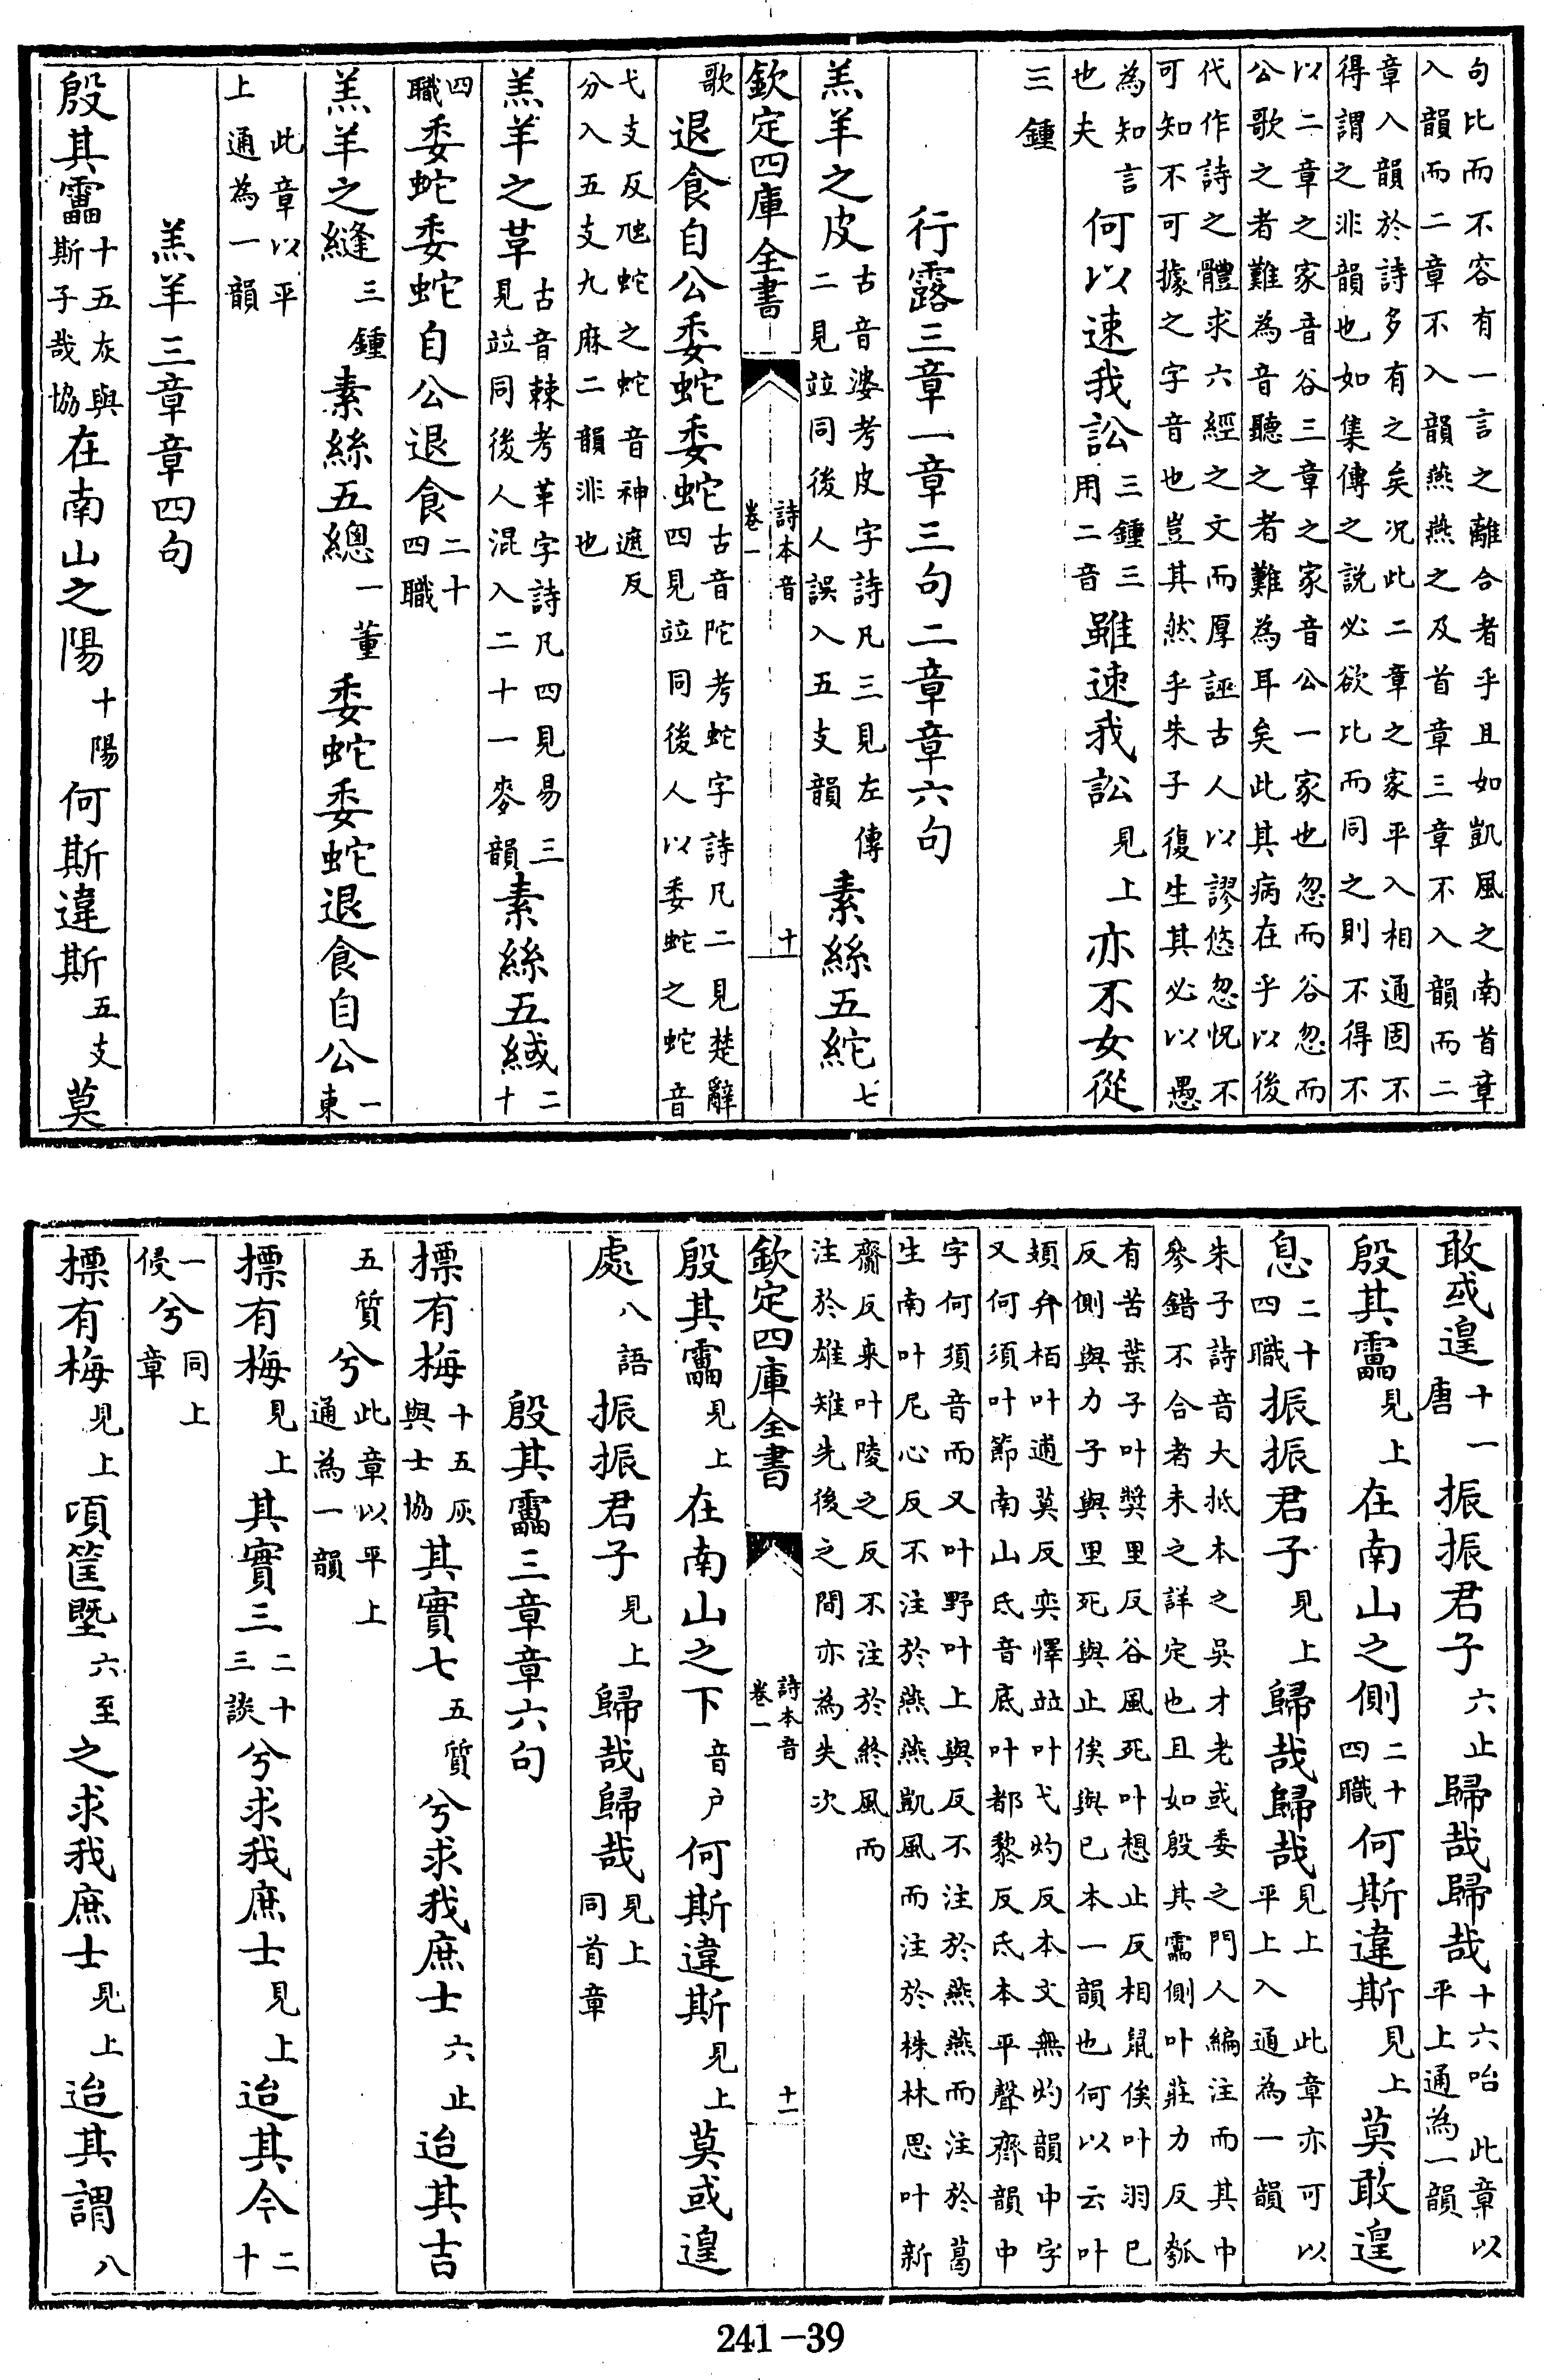 句比而不容有一言之離合者乎且如凱風之南首章
入韻而二章不入韻燕燕之及首章三章不入韻而二
章入韻於詩多有之矣况此二章之家平入相通固不
得謂之非韻也如集傳之説必欲比而同之則不得不
以二章之家音谷三章之家音公一家也忽而谷忽而
公歌之者難為音聽之者難為耳矣此其病在乎以後
代作詩之體求六經之文而厚誣古人以謬悠忽怳不
可知不可據之字音也豈其然乎朱子復生其必以愚
為知言也夫何以速我訟三鍾三用二音雖速我訟見上亦不女從
三鍾
行露三章一章三句二章章六句
羔羊之皮古音婆考皮字詩凡三見左傳二見竝同後人誤入五支韻素絲五紽七
欽定四庫全書 詩本音 卷一 十
歌退食自公委蛇委蛇古音陀考蛇字詩凡二見楚辭四見竝同後人以委蛇之蛇音
弋支反虺蛇之蛇音神遮反
分入五支九麻二韻非也
羔羊之革古音棘考革字詩凡四見易三見竝同後人混入二十一麥韻素絲五緎二十
四職委蛇委蛇自公退食二十四職
羔羊之縫三鍾素絲五總一董委蛇委蛇退食自公一東
此章以平
上通為一韻
羔羊三章章四句
殷其靁十五灰與斯子哉協在南山之陽十陽何斯違斯五支莫
敢或遑十一唐振振君子六止歸哉歸哉十六咍此章以平上通為一韻
殷其靁見上在南山之側二十四職何斯違斯見上莫敢遑
息二十四職振振君子見上歸哉歸哉見上此章亦可以平上入通為一韻
朱子詩音大抵本之吳才老或委之門人編注而其中
參錯不合者未之詳定也且如殷其靁側叶莊力反匏
有苦葉子叶獎里反谷風死叶想止反相鼠俟叶羽已
反側與力子與里死與止俟與已本一韻也何以云叶
頍弁栢叶逋莫反奕懌竝叶弋灼反本文無灼韻中字
又何須叶節南山氐音底叶都黎反氐本平聲齊韻中
字何須音而又叶野叶上與反不注於燕燕而注於葛
生南叶尼心反不注於燕燕凱風而注於株林思叶新
齎反来叶陵之反不注於終風而
注於雄雉先後之間亦為失次
欽定四庫全書 詩本音 卷一 十一
殷其靁見上在南山之下音户何斯違斯見上莫或遑
處八語振振君子見上歸哉歸哉見上同首章
殷其靁三章章六句
摽有梅十五灰與士協其實七五質兮求我庶士六止迨其吉
五質兮此章以平上通為一韻
摽有梅見上其實三二十三談兮求我庶士見上迨其今二十
一侵兮同上章
摽有梅見上頃筐墍六至之求我庶士見上迨其謂八
241-39